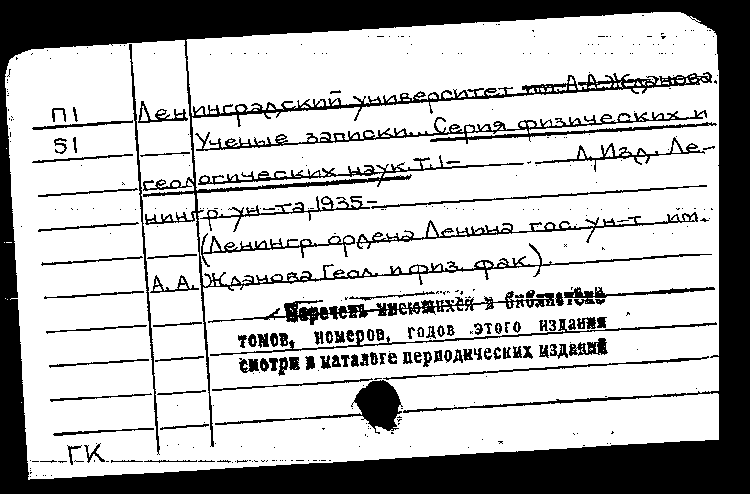 П1 Ленинградский университет им. А.А. Жданова.
51 Ученые записки... Серия физических и
геологических наук. Т.1– Л, Изд. Ле-
нингр. ун-та, 1935–
(Ленингр. ордена Ленина гос. ун-т им.
А. А. Жданова Геол. и физ. фак.).
Перечень имеющихся в библиотеке
томов, номеров, годов этого издания
смотри в каталоге периодических изданий
ГК